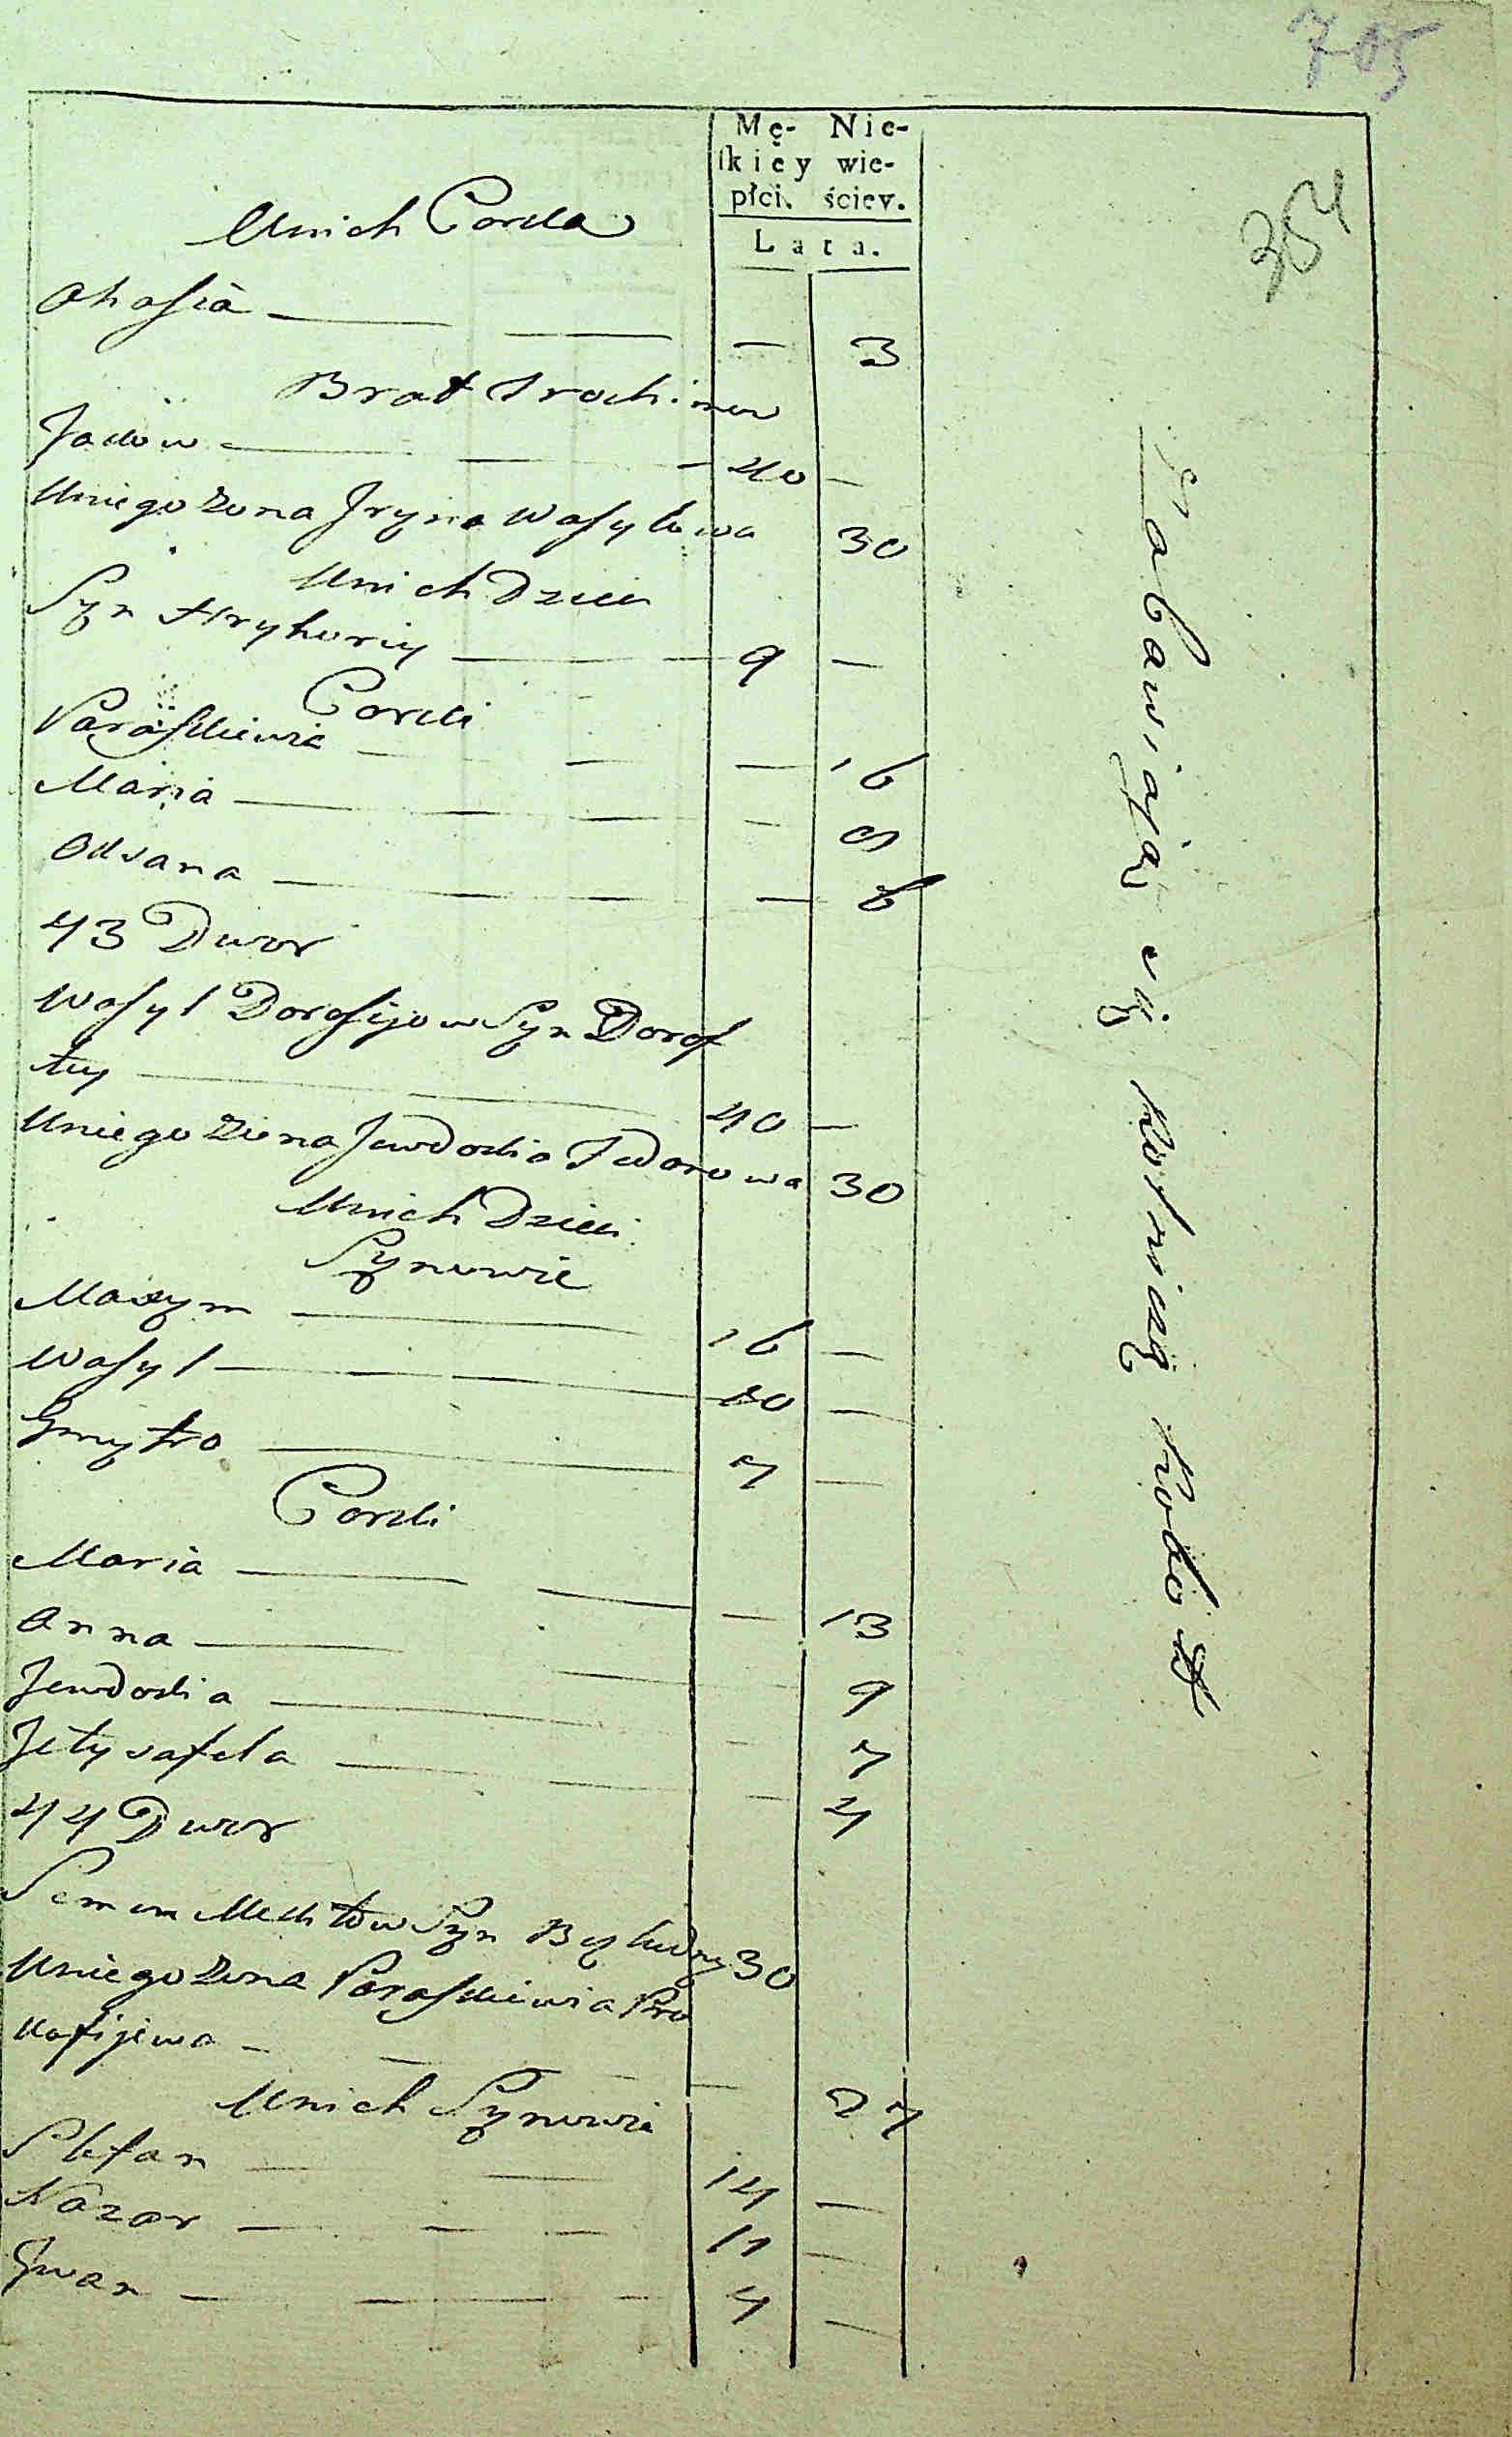 705
Mę- Nie-
skiey wie-
płci. ściey.
Lata.
354
Unich Corka
Ohasia — — — 3
Brat Trochimow
Jakow — — — 40 —
Uniego Zona Jryna Wasylowa 30
Unich Dzieci
Syn Hryhoriy — — 9 —
Corki
Paraskiewia — — — 16
Maria — — — — 9
Oksana — — — — 6
43 Dwor
Wasyl Dorosijow Syn Dorof
tey — — 40 —
Uniego Ziena Jewdokia Fedorowa 30
Unich Dzieci
Synowie
Maxym — 16 —
Wasyl — — 10 —
Gmytro — 7 —
Corki
Maria — — — 13
Anna — — 9
Jewdokia — — — 7
Jełysafeta — — — 4
44 Dwor
Semen Syn 30
Uniego Zona Paraskiewia Pro
kofijewa — — — — 27
Unich Synowie
Stefan — — 14 —
Nazar — — — 11 —
Jwan — — — 4 —
Zabawiają się Rolniczą Robotą